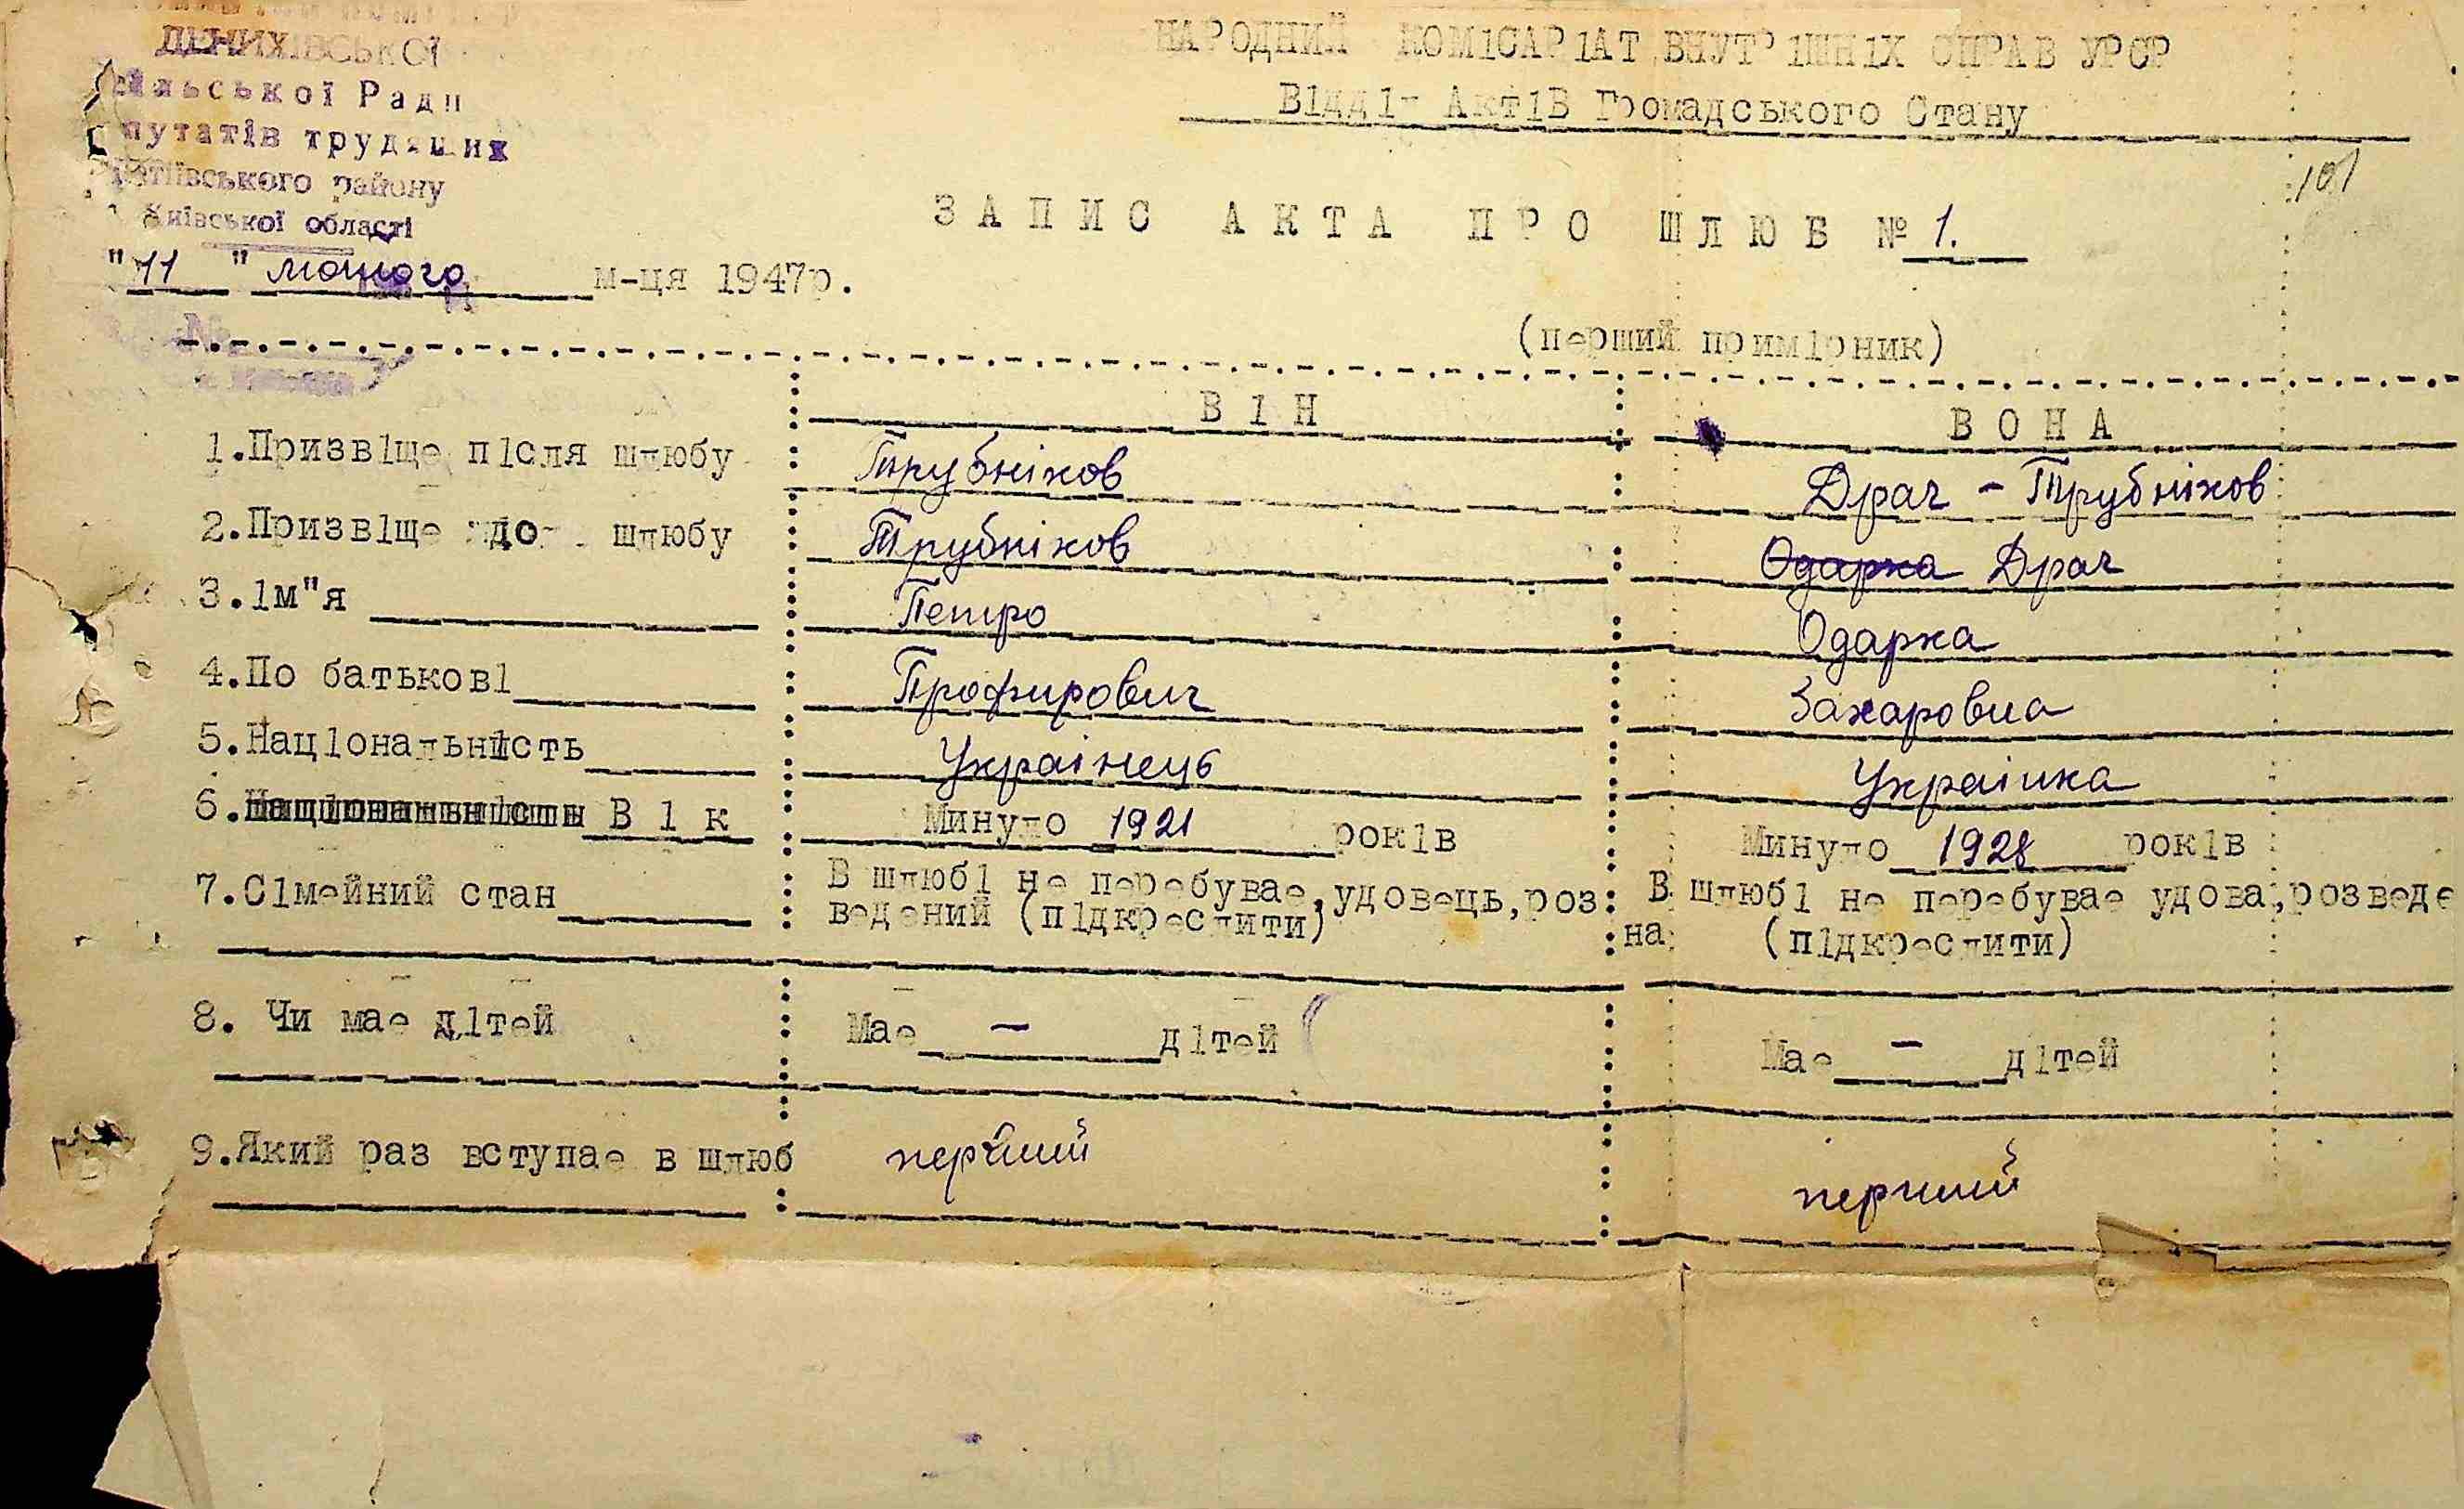 ДЕНИХІВСЬКОЇ
сільської Ради
путатів трудящих
тіївського району
Київської області
"11" лютого м-ця 1947р.
НАРОДНИЙ КОМ1САР1АТ ВНУТР1ШН1Х СПРАВ УРСР
В1дд1л Акт1В Громадського Стану
101
ЗАПИС АКТА ПРО ШЛЮБ № 1.
(перший прим1рник)
В1Н ВОНА
1.Призв1ще п1сля шлюбу Трубніков Драч - Трубніков
2.Призв1ще до шлюбу Трубніков Одарка Драч
3.1м"я Петро Одарка
4.По батьков1 Профирович Захаровна
5.Нац1ональність Украінець Украінка
6.Нац1ональн1сть В 1 к Минуло 1921 рок1в Минуло 1928 рок1в
7.С1мейний стан В шлюб1 не перебувае,удовець,роз В шлюб1 не перебувае удова,розведе
ведений (п1дкреслити) на (п1дкреслити)
8. Чи мае д1тей Мае - д1тей Мае - д1тей
9.Який раз вступае в шлюб перший перший